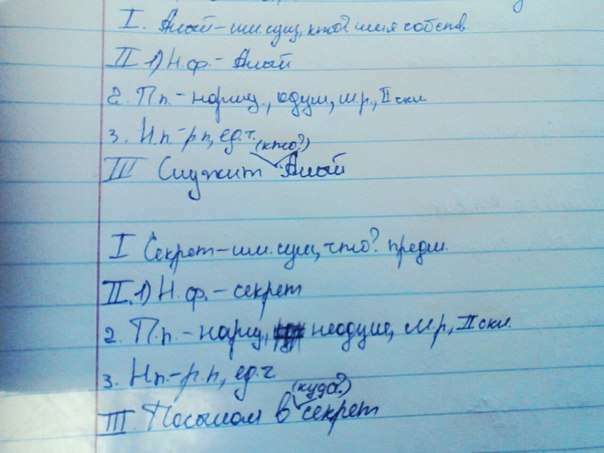 I. Алый – им. сущ, кто? имя собств.
II 1) Н.ф. – Алый
2. П.п. – нариц., одуш, м.р., II скл
3. Н.п – р.п, ед.ч.
(кто?)
III Служит Алый
I Секрет – им. сущ, что? предм.
II. 1) Н.ф. – секрет
2. П.п. – нариц, неодуш, м.р, II скл.
3. Нп. – р.п, ед.ч
(куда?)
III Посылом в секрет